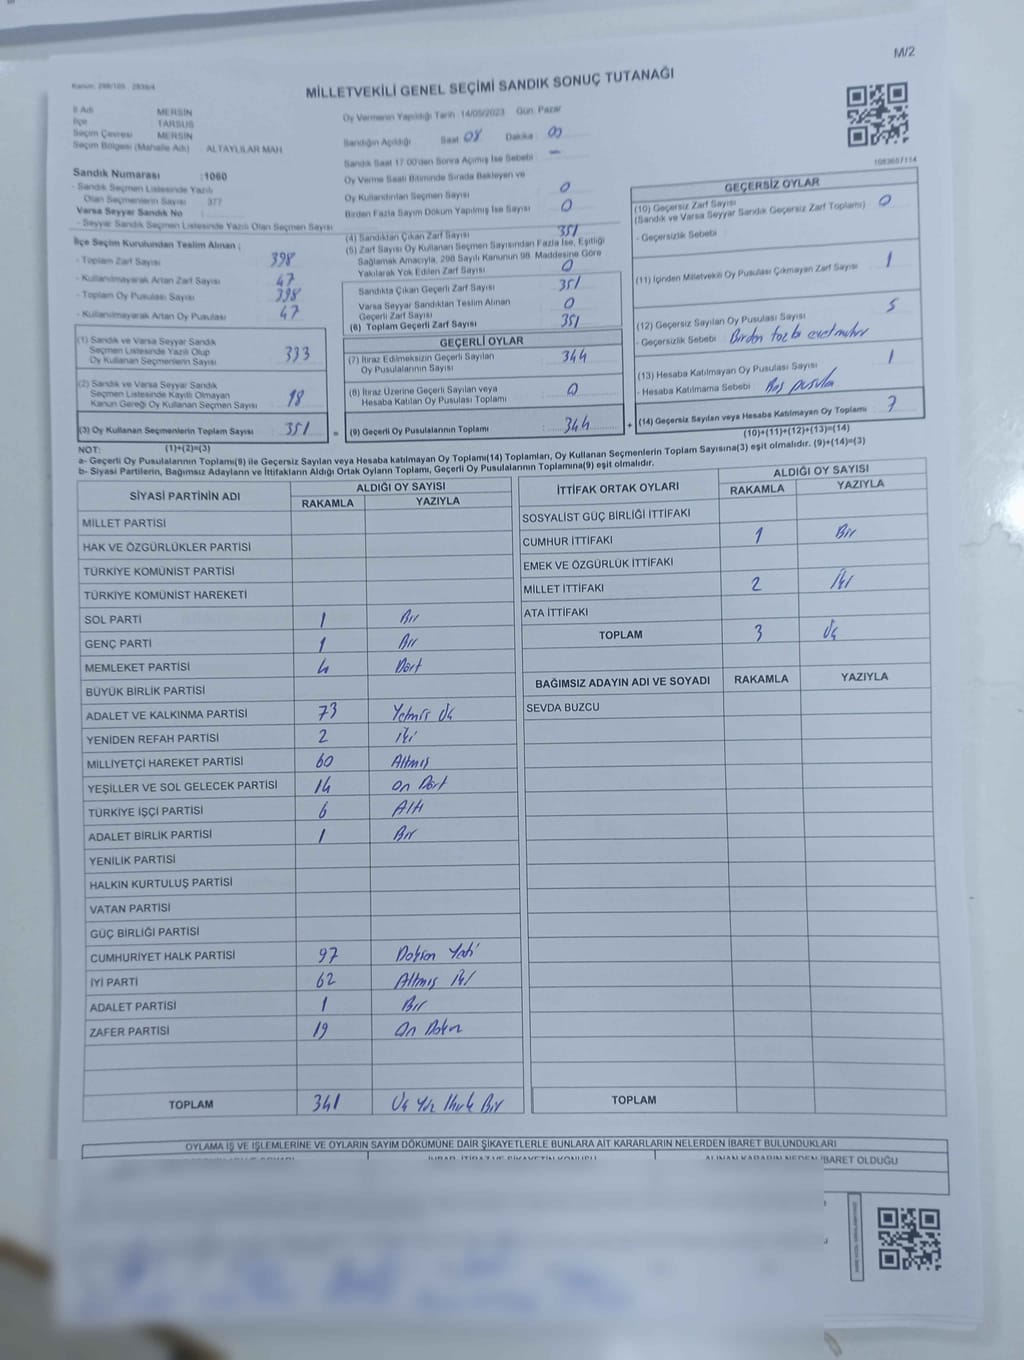 M/2
Kanun: 298/105 , 2839/4
MİLLETVEKİLİ GENEL SEÇİMİ SANDIK SONUÇ TUTANAĞI
İl Adı MERSİN
İlçe TARSUS
Seçim Çevresi MERSİN
Seçim Bölgesi (Mahalle Adı) ALTAYLILAR MAH
Oy Vermenin Yapıldığı Tarih 14/05/2023 Gün: Pazar
Sandığın Açıldığı Saat 08 Dakika 00
Sandık Saat 17.00'den Sonra Açılmış İse Sebebi -
Oy Verme Saati Bitiminde Sırada Bekleyen ve
Oy Kullandırılan Seçmen Sayısı 0
Birden Fazla Sayım Döküm Yapılmış İse Sayısı 0
1083607114
Sandık Numarası :1060
- Sandık Seçmen Listesinde Yazılı
Olan Seçmenlerin Sayısı 377
Varsa Seyyar Sandık No
- Seyyar Sandık Seçmen Listesinde Yazılı Olan Seçmen Sayısı
İlçe Seçim Kurulundan Teslim Alınan ;
- Toplam Zarf Sayısı 398
- Kullanılmayarak Artan Zarf Sayısı 47
- Toplam Oy Pusulası Sayısı 398
- Kullanılmayarak Artan Oy Pusulası 47
(1) Sandık ve Varsa Seyyar Sandık
Seçmen Listesinde Yazılı Olup
Oy Kullanan Seçmenlerin Sayısı 333
(2) Sandık ve Varsa Seyyar Sandık
Seçmen Listesinde Kayıtlı Olmayan
Kanun Gereği Oy Kullanan Seçmen Sayısı 18
(3) Oy Kullanan Seçmenlerin Toplam Sayısı 351
(4) Sandıktan Çıkan Zarf Sayısı 351
(5) Zarf Sayısı Oy Kullanan Seçmen Sayısından Fazla İse, Eşitliği
Sağlamak Amacıyla, 298 Sayılı Kanunun 98. Maddesine Göre
Yakılarak Yok Edilen Zarf Sayısı 0
Sandıkta Çıkan Geçerli Zarf Sayısı 351
Varsa Seyyar Sandıktan Teslim Alınan
Geçerli Zarf Sayısı 0
(6) Toplam Geçerli Zarf Sayısı 351
GEÇERLİ OYLAR
(7) İtiraz Edilmeksizin Geçerli Sayılan
Oy Pusulalarının Sayısı 344
(8) İtiraz Üzerine Geçerli Sayılan veya
Hesaba Katılan Oy Pusulası Toplamı 0
= (9) Geçerli Oy Pusulalarının Toplamı 344
GEÇERSİZ OYLAR
(10) Geçersiz Zarf Sayısı 0
(Sandık ve Varsa Seyyar Sandık Geçersiz Zarf Toplamı)
- Geçersizlik Sebebi
(11) İçinden Milletvekili Oy Pusulası Çıkmayan Zarf Sayısı 1
(12) Geçersiz Sayılan Oy Pusulası Sayısı 5
- Geçersizlik Sebebi Birden fazla evet mühür
(13) Hesaba Katılmayan Oy Pusulası Sayısı 1
- Hesaba Katılmama Sebebi Boş pusula
+ (14) Geçersiz Sayılan veya Hesaba Katılmayan Oy Toplamı 7
NOT: (1)+(2)=(3)
(10)+(11)+(12)+(13)=(14)
a- Geçerli Oy Pusulalarının Toplamı(9) ile Geçersiz Sayılan veya Hesaba Katılmayan Oy Toplamı(14) Toplamları, Oy Kullanan Seçmenlerin Toplam Sayısına(3) eşit olmalıdır. (9)+(14)=(3)
b- Siyasi Partilerin, Bağımsız Adayların ve İttifakların Aldığı Ortak Oyların Toplamı, Geçerli Oy Pusulalarının Toplamına(9) eşit olmalıdır.
SİYASİ PARTİNİN ADI ALDIĞI OY SAYISI
RAKAMLA YAZIYLA
MİLLET PARTİSİ
HAK VE ÖZGÜRLÜKLER PARTİSİ
TÜRKİYE KOMÜNİST PARTİSİ
TÜRKİYE KOMÜNİST HAREKETİ
SOL PARTİ 1 Bir
GENÇ PARTİ 1 Bir
MEMLEKET PARTİSİ 4 Dört
BÜYÜK BİRLİK PARTİSİ
ADALET VE KALKINMA PARTİSİ 73 Yetmiş Üç
YENİDEN REFAH PARTİSİ 2 iki
MİLLİYETÇİ HAREKET PARTİSİ 60 Altmış
YEŞİLLER VE SOL GELECEK PARTİSİ 14 On Dört
TÜRKİYE İŞÇİ PARTİSİ 6 Altı
ADALET BİRLİK PARTİSİ 1 Bir
YENİLİK PARTİSİ
HALKIN KURTULUŞ PARTİSİ
VATAN PARTİSİ
GÜÇ BİRLİĞİ PARTİSİ
CUMHURİYET HALK PARTİSİ 97 Doksan Yedi
İYİ PARTİ 62 Altmış iki
ADALET PARTİSİ 1 Bir
ZAFER PARTİSİ 19 On Dokuz
TOPLAM 341 Üç Yüz Kırk Bir
İTTİFAK ORTAK OYLARI ALDIĞI OY SAYISI
RAKAMLA YAZIYLA
SOSYALİST GÜÇ BİRLİĞİ İTTİFAKI
CUMHUR İTTİFAKI 1 Bir
EMEK VE ÖZGÜRLÜK İTTİFAKI
MİLLET İTTİFAKI 2 İki
ATA İTTİFAKI
TOPLAM 3 Üç
BAĞIMSIZ ADAYIN ADI VE SOYADI RAKAMLA YAZIYLA
SEVDA BUZCU
TOPLAM
OYLAMA İŞ VE İŞLEMLERİNE VE OYLARIN SAYIM DÖKÜMÜNE DAİR ŞİKAYETLERLE BUNLARA AİT KARARLARIN NELERDEN İBARET BULUNDUKLARI
ALINAN KARARIN NEDEN İBARET OLDUĞU